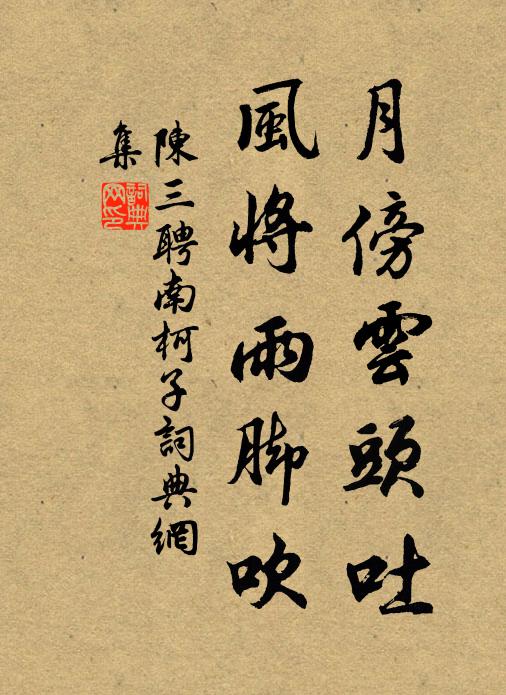 月傍雲頭吐
風將雨脚吹
陳三聘南柯子詞典網
集
詞典網印